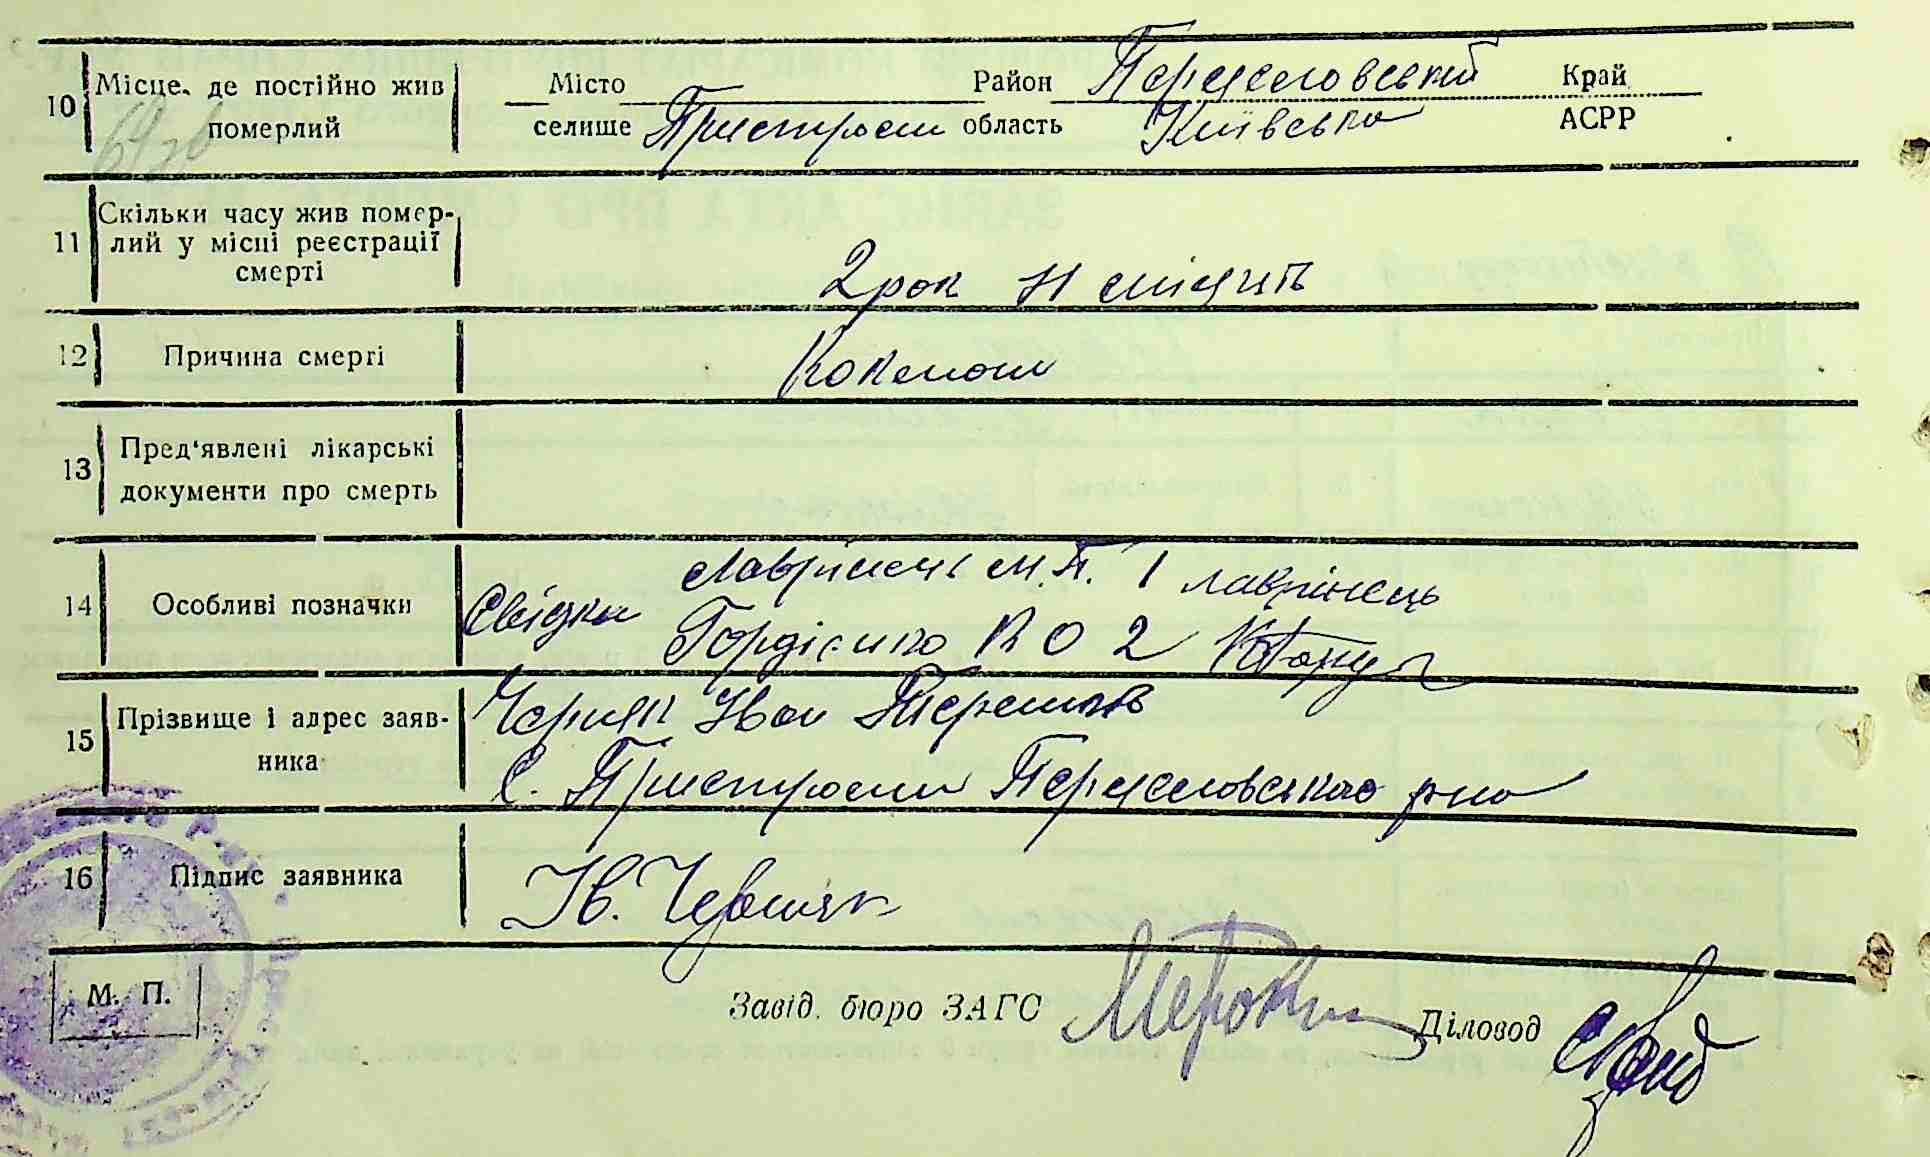 10 Місце, де постійно жив померлий
Місто Район Переяславський Край
селище Пристроми область Київська АСРР
11 Скільки часу жив помер-
лий у місці реєстрації
смерті
2 рок 11 місяців
12 Причина смерті Коклюш
13 Пред'явлені лікарські
документи про смерть
14 Особливі позначки
Свідки Лавринець М.П. 1 Лаврінець
Гордієнко К О 2
15 Прізвище і адрес заяв-
ника
Черняк Іван
С. Пристроми Переяславського р-на
16 Підпис заявника Ів. Черняк
М. П.
Завід. бюро ЗАГС
Діловод